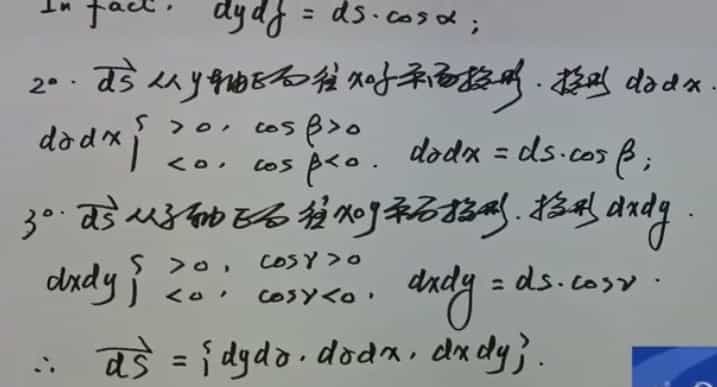 In fact. dydz = ds·cosα;
2°. ds→ 从y轴正向往xoz平面投影. 投影 dzdx.
dzdx { >0, cosβ>0
<0, cosβ<0. dzdx = ds·cosβ;
3°. ds→ 从z轴正向往xoy平面投影. 投影 dxdy.
dxdy { >0, cosγ>0
<0, cosγ<0. dxdy = ds·cosγ.
∴ ds→ = {dydz, dzdx, dxdy}.